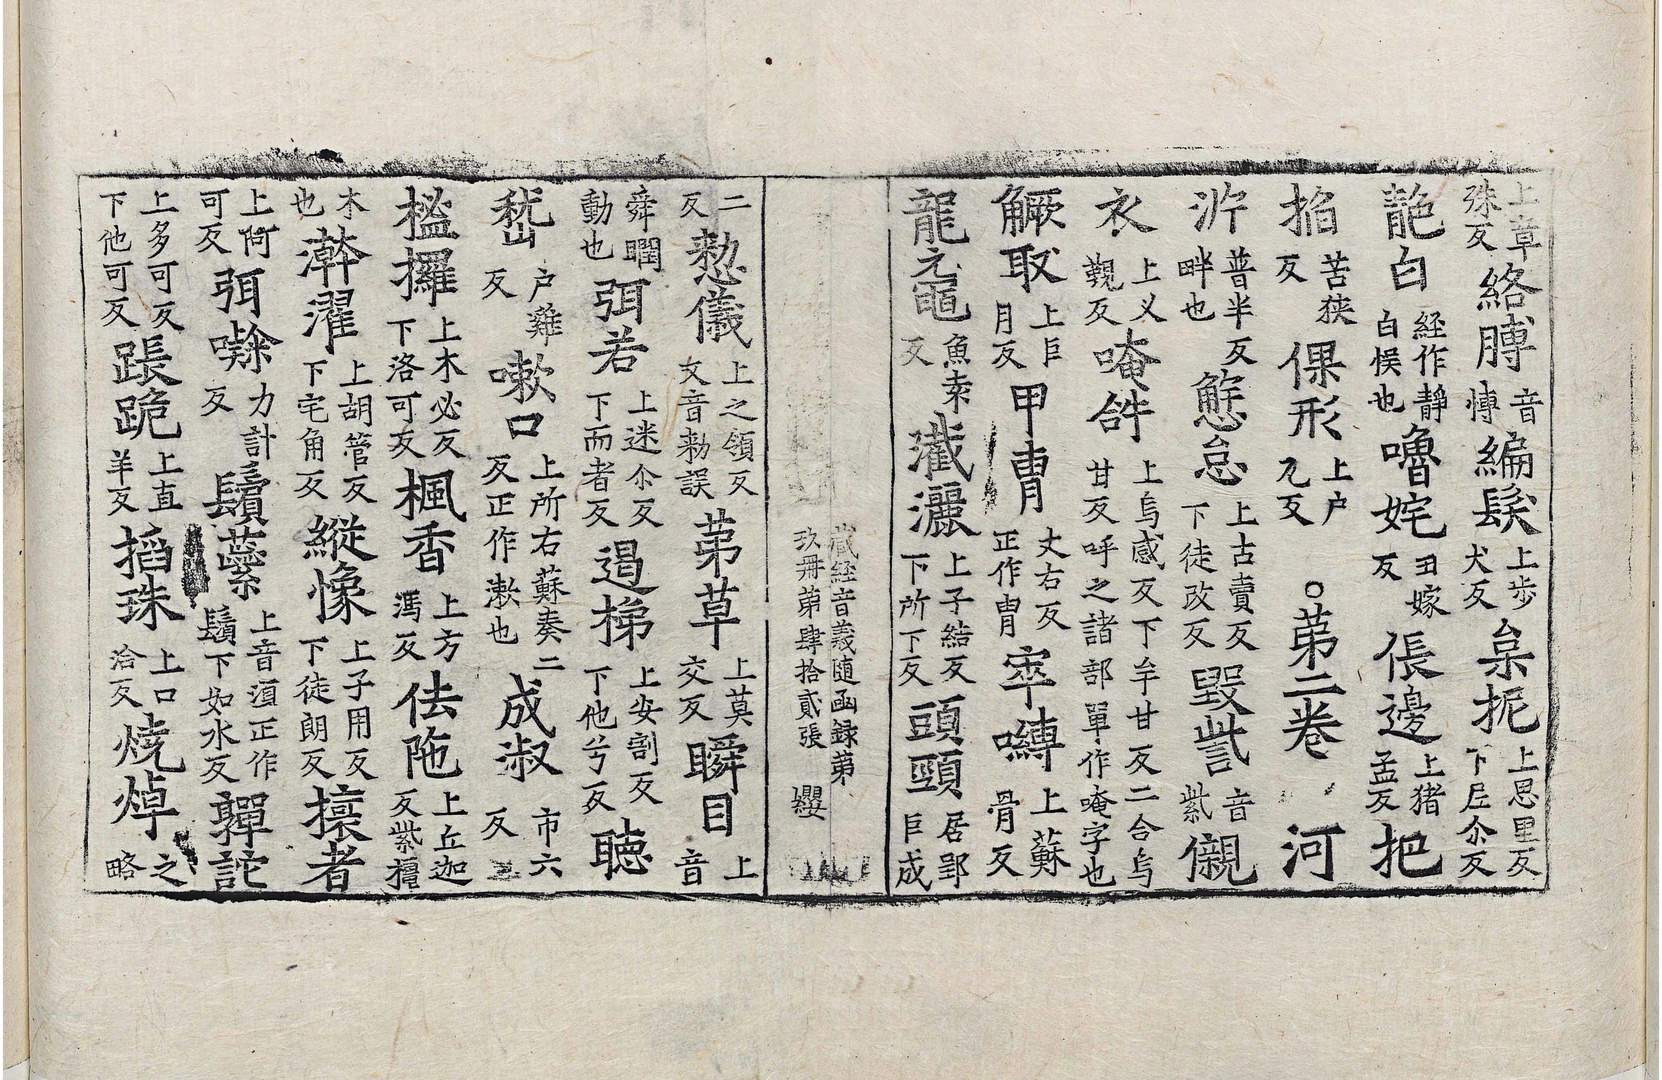 上章殊反絡膊音愽編髮上步犬反枲抳上思里反下𡰱尒反
靘白經作靜白悮也嚕姹丑嫁反倀邊上猪孟反把
掐苦狭反倮形上户瓦反○第二卷河
泝普半反畔也懈怠上古賣反下徒改反毀訾音紫儭
衣上义覲反唵𤙖上烏感反下牟甘反二合烏甘反呼之諸部單作唵字也
鱖取上巨月反甲冑丈右反正作胄窣嚩上蘇骨反
龍黿魚素反瀐灑上子結反下所下反頭頸居郢巨成
藏經音義随函録第玖冊第肆拾貳張纓
二反愸儀上之領反又音勅誤茅草上莫交反瞬目上音
舜瞤動也弭若上迷尒反下而者反遏梯上安割反下他兮反聴
嵇户雞反嗽口上所右蘇奏二反正作漱也成淑市六反
榓攞上木必反下洛可反楓香上方馮反佉陁上丘迦反紫檀
木也澣濯上胡管反下宅角反縱像上子用反下徒朗反攘者
上何可反弭㗚力計反鬚蘂上音須正作鬚下如水反嚲詑
上多可反下他可反踬跪上直羊反搯珠上口洽反燒焯之略